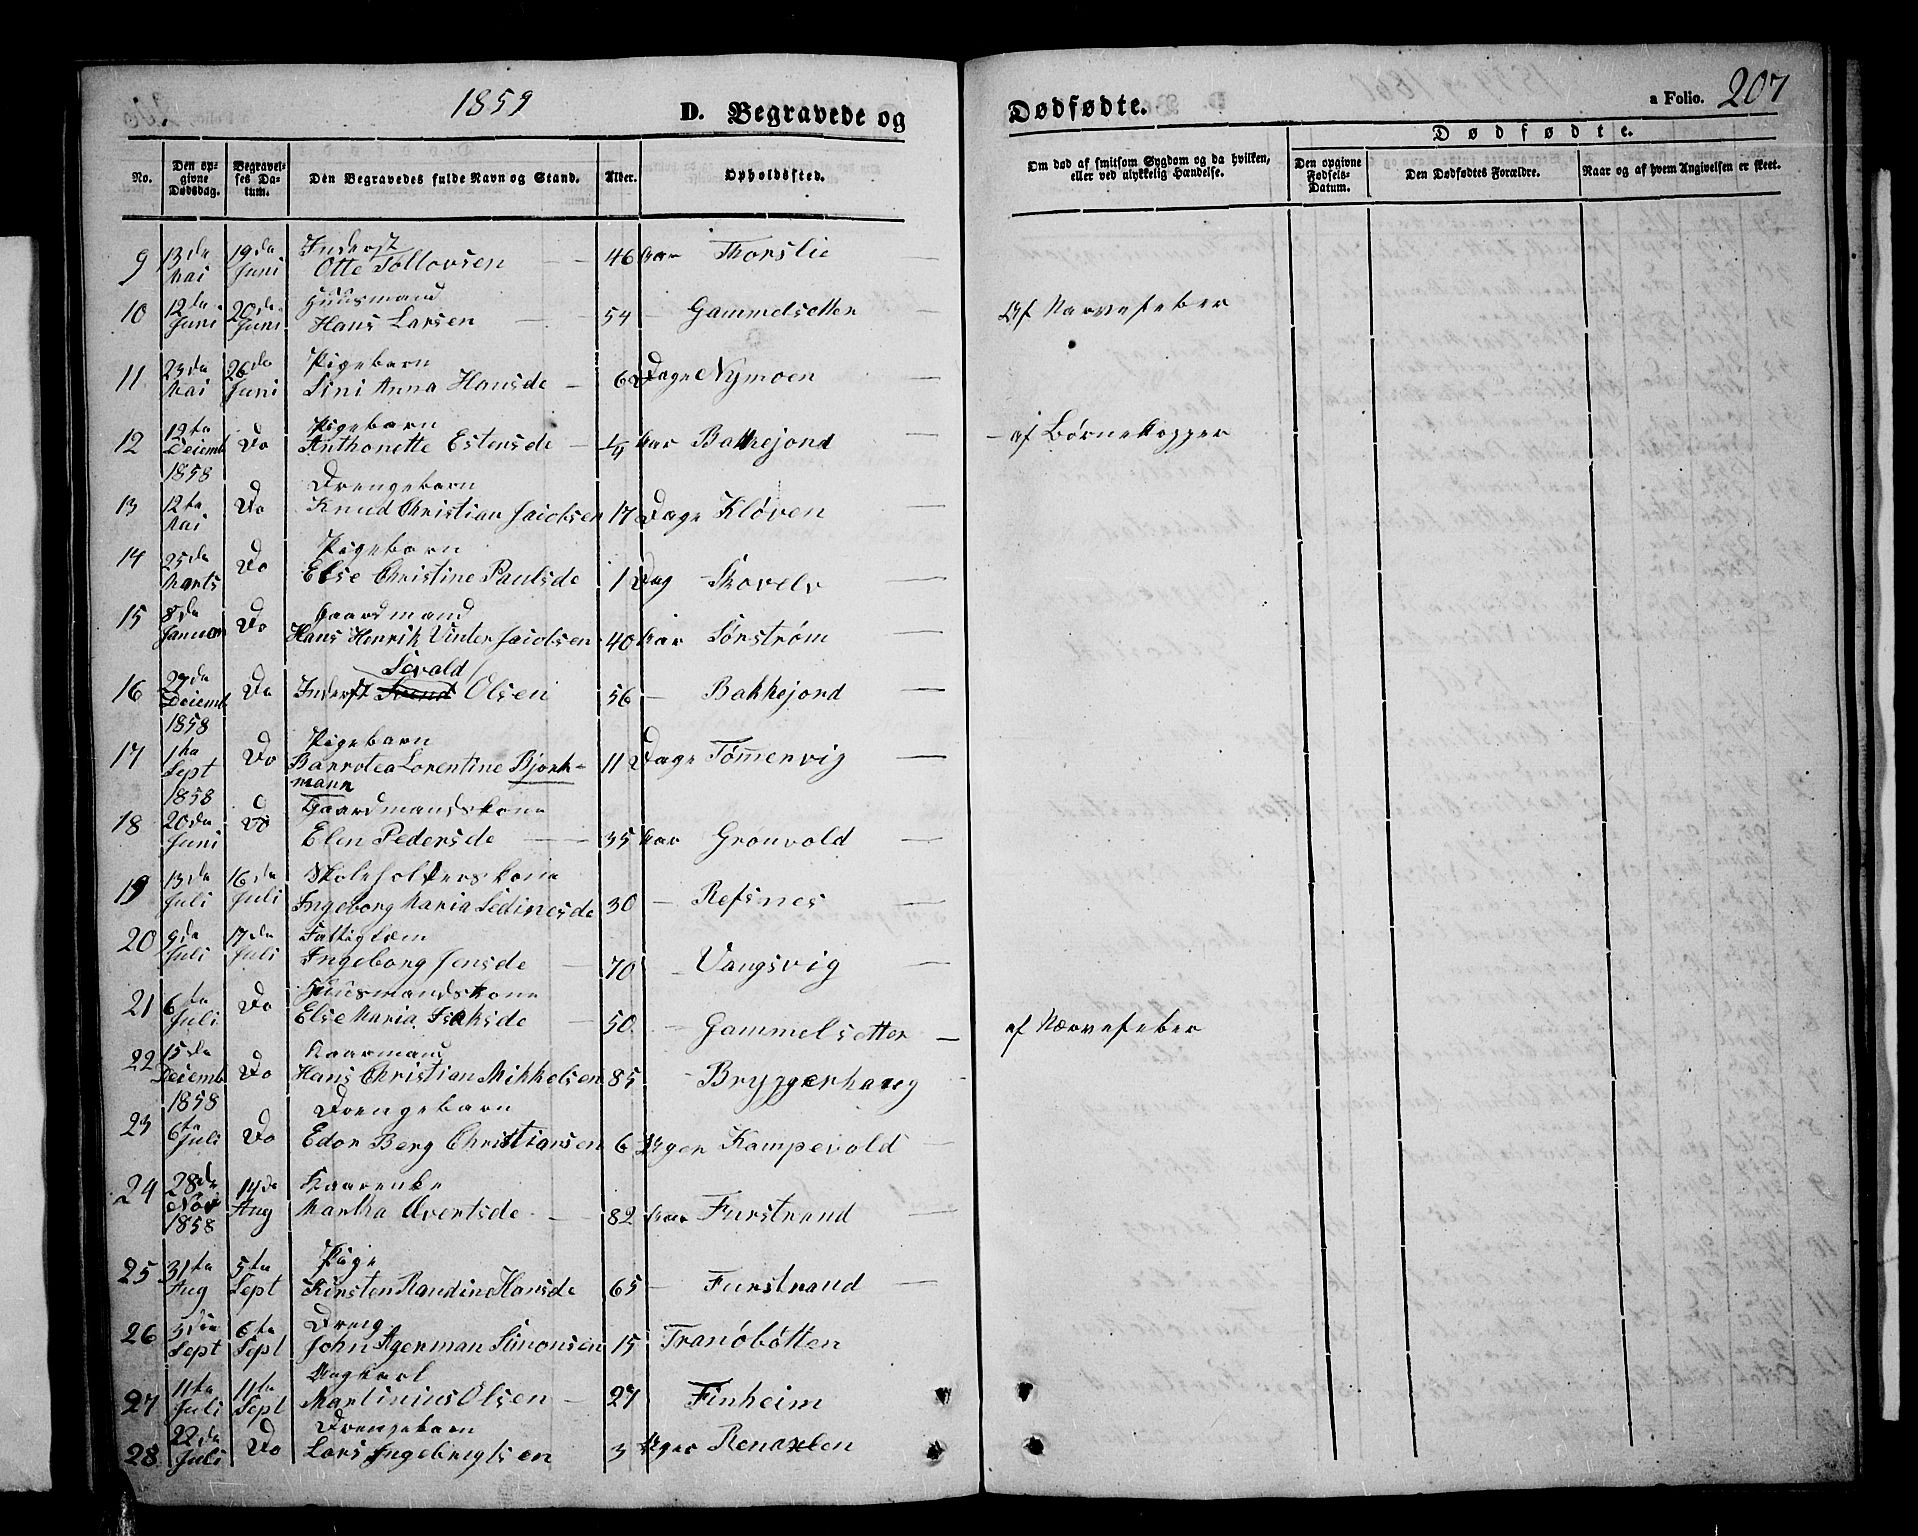 1859
D. Begravede og
Dødfødte.
a Folio. 207
No.
Den opgivne Dødsdag.
Begravelses Datum.
Den Begravedes fulde Navn og Stand.
Alder.
Opholdssted.
Om død af smitsom Sygdom og da hvilken, eller ved ulykkelig Hændelse.
Dødfødte.
Den opgivne Fødsels-Datum.
Den Dødfødtes Forældre.
Naar og af hvem Angivelsen er skeet.
9 13da Mai 19da Juni Inderst
Otte Tollovsen 46 Aar Thorslie
10 12da Juni 20da Juni Huusmand
Hans Larsen 54 - Gammelsetter - Af Nervefeber
11 23da Mai 26da Juni Pigebarn
Lini Anna Hansde - 6 Dage Nymoen
12 12ta Deiemb 1858 Do Pigebarn
Anthonette Estensde - 4 Aar Bakkejord - af Børnekopper
13 12ta Mai Do Drengebarn
Knud Christian Jacobsen 17 Dage Kløven
14 25da Marts Do Pigebarn
Else Christine Paulsde 1 Dag Skovelv
15 8da Januar Do Gaardmand
Hans Henrik Vinter Jacobsen 40 Aar Sørstrøm
Sevald
16 27da Deiemb 1858 Do Inderst Olsen 56 - Bakkejord
17 1ta Sept 1858 Do Pigebarn
Barrolea Lorentine Bjorkmann 11 Dage Tömmervig
18 20da Juni Do Gaardmandskone
Elen Pedersde 35 Aar Gronvold
19 13da Juli 16da Juli Skoleholderskone
Ingeborg Maria Sedinesde 30 - Refsnes
20 9da Juli 17da Juli Fattiglem
Ingeborg Jensde 70 - Vangsvig
21 6ta Juli Do Huusmandskone
Else Maria Isaksde 50 - Gammelsetter - af Nervefeber
22 15da Deiemb 1858 Do Kaarmand
Hans Christian Mikkelsen 85 - Bryggerhaug
23 6ta Juli Do Drengebarn
Edor Berg Christiansen 6 Uger Kampevold
24 28da Nov 1858 14da Aug Kaarenke
Martha Evertsde 82 Aar Furstrand
25 31ta Aug 5ta Sept Pige
Kirsten Raudin Hansde 65 - Furstrand
26 3die Sept 6ta Sept Dreng
John Agerman Simonsen 15 Tranöbötten
27 11ta Juli 11ta Sept Ungkarl
Martinius Olsen - 27 Finheim
28 22da Juli Do Drengebarn
Lars Ingebregtsen 3 Uger Renaelen